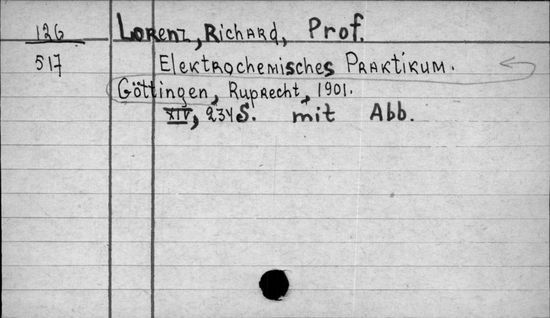 126
517
Lorenz, Richard, Prof.
Elektrochemisches Praktikum.
Göttingen, Ruprecht, 1901.
XIV, 234 S. mit Abb.